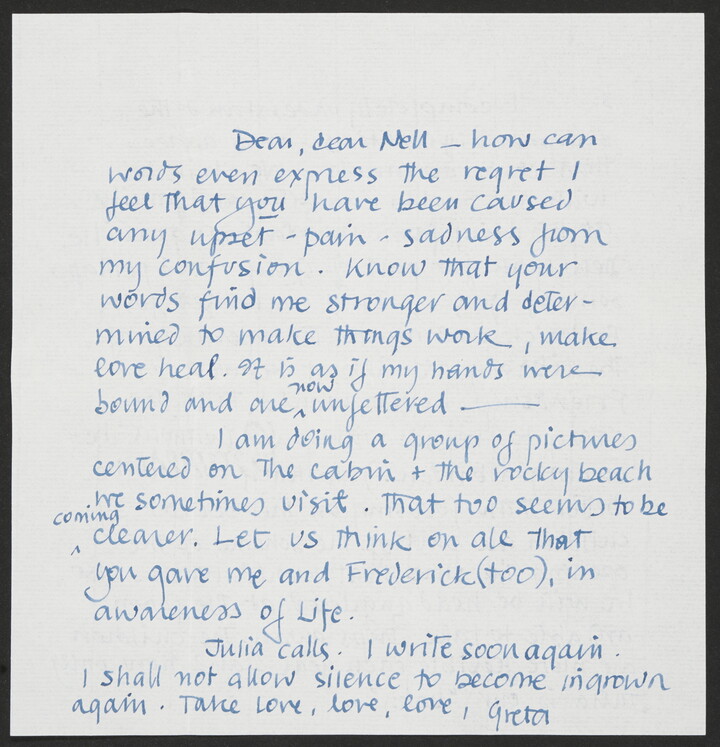 Dear, dear Nell – how can
words even express the regret I
feel that you have been caused
any upset - pain - sadness from
my confusion. Know that your
words find me stronger and deter-
mined to make things work, make
love heal. It is as if my hands were
bound and are now unfettered —
I am doing a group of pictures
centered on the cabin + the rocky beach
we sometimes visit. That too seems to be
coming
clearer. Let us think on all that
you gave me and Frederick (too), in
awareness of Life.
Julia calls. I write soon again.
I shall not allow silence to become ingrown
again. Take love, love, love, Greta